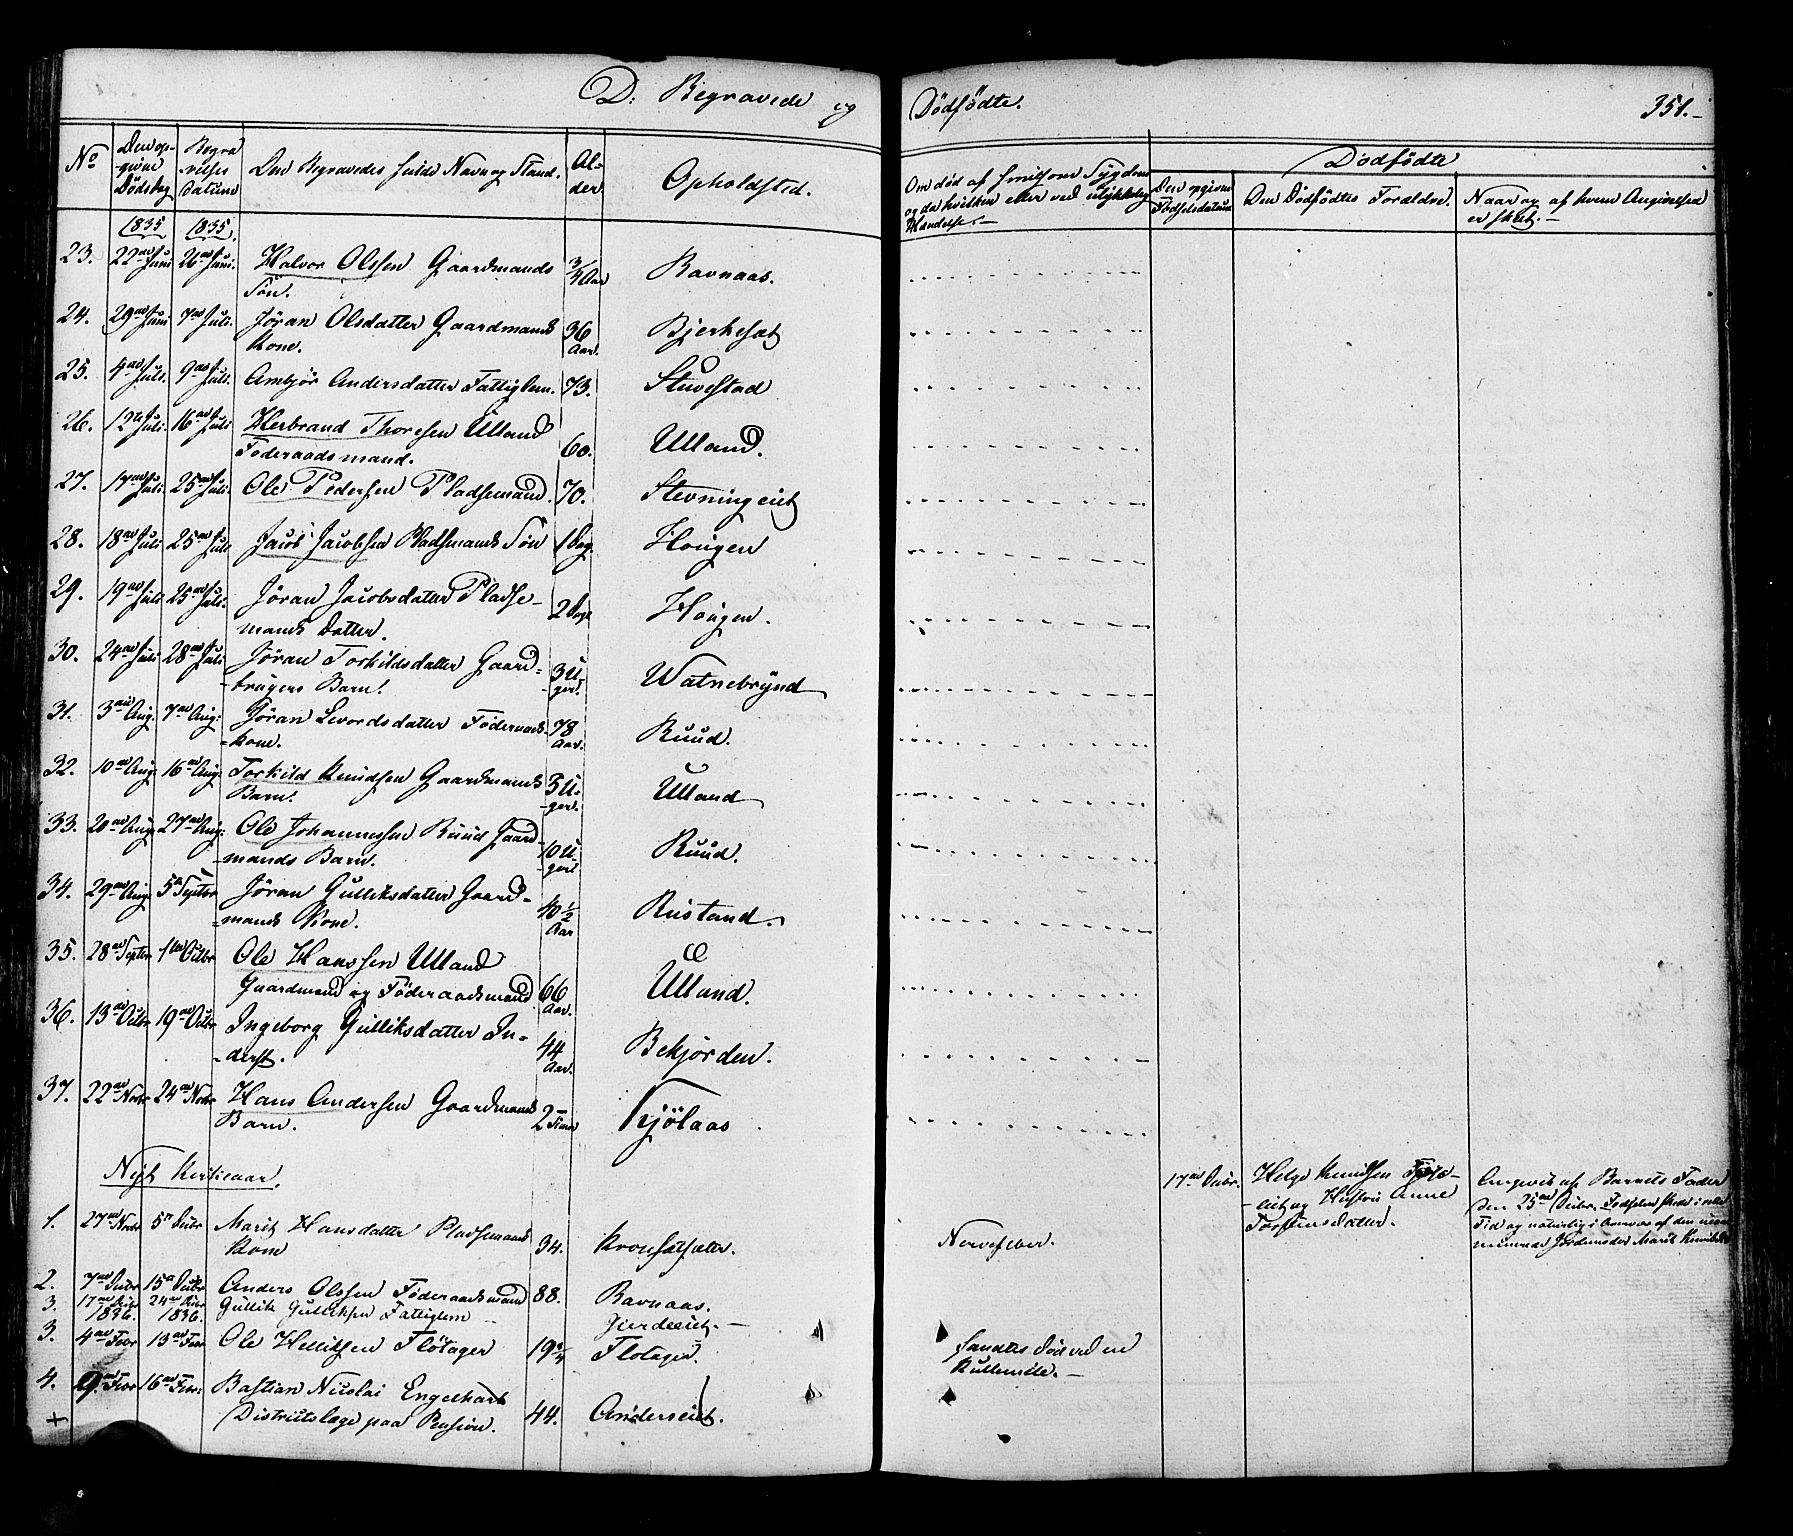 D: Begravede og Dødfödte. 351.
No Den opgivne Dödsdag Begravelses Datum Den Begravedes fulde Navn og Stand. Alder Opholdsted. Om död af smitsom Sygdom og da hvilken eller ved ulykkelig Hændelse.- Dödfödte
Den opgivne Födselsdatum Den Dödfödtes Forældre. Naar og af hvem Angivelsen er skeet.-
1835 1835.
23. 22de Juni 26de Juni. Halvor Olssen Gaardmands Sön. 3/4 Aar Ravnaas.
24. 29de Juni 7de Juli. Jöran Olsdatter Gaardmands Kone. 36 Aar. Bjerkeset
25. 4de Juli. 9de Juli. Ambjör Andersdatter Fattiglem. 73. Stuvestad
26. 12te Juli. 16de Juli Herbrand Thoresen Ulland Föderaadsmand. 60. Ulland.
27. 17de Juli. 25de Juli. Ole Pedersen Pladsemand. 70. Stevningeiet
28. 18de Juli 25de Juli Jacob Jacobsen Pladsmands Sön 1 Dag. Hougen
29. 19de Juli 25de Juli. Jöran Jacobsdatter Pladse-
mands Datter. 2 Dage Hougen.
30. 24de Juli 28de Juli Jöran Torkildsdatter Gaard-
-brugers Barn. 3 U-
-ger. Watnebrynd
31. 3die Aug. 7de Aug: Jöran Sevordsdatter Föderaads-
-kone. 78 Aar. Ruud.
32. 10de Aug 16de Aug. Torkild Knudsen Gaardmands Barn. 3 U-
-ger. Ulland
33. 20de Aug. 27de Aug: Ole Johannessen Ruud Gaard-
-mands Barn. 10 U-
-ger Ruud.
34. 29de Aug. 5te Septbr Jöran Gulliksdatter Gaard-
-mands Kone. 40 1/2 Aar Rustand.
35. 28de Septbr 1ste Octbr Ole Hanssen Ulland
Gaardmand og Föderaadsmand 66 Aar. Ulland.
36. 13de Octbr 19de Octbr Ingeborg Gulliksdatter In-
-derst. 44 Aar. Bekjorden.
37. 22de Novbr 24de Novbr Hans Andersen Gaardmands Barn. 2 Timer Kjölaas
Nyt Kirkeaar.
17de Decbr. Helge Knudsen
og Hustru Anne
Torstensdatter. Angivet af Barnets Fader
den 25de Decbr. Fødselen skede i rette
Tid og naturlig i Overvær af den
Jordemoder Marit
1. 27de Novbr 5te Decbr Marit Hansdatter Pladsmands Kone 34. Kronsætsæter. Nervefeber.
2. 7de Decbr 15de Decbr Anders Olssen Föderaadsmand 88. Ravnaas.
3. 17de Decbr 24de Decbr Gullik Gulliksen Fattiglem - Gjerdeeiet.-
1836. 1836.
3. 4de Febr 13de Febr Ole Helliksen Flötager 19 3/4 Flotager. fandtes död ved en Kullemile.-
4. 9de Febr 16de Febr: Bastian Nicolai Engelhart
Districtslæge paa Pension. 44. Anderseiet.